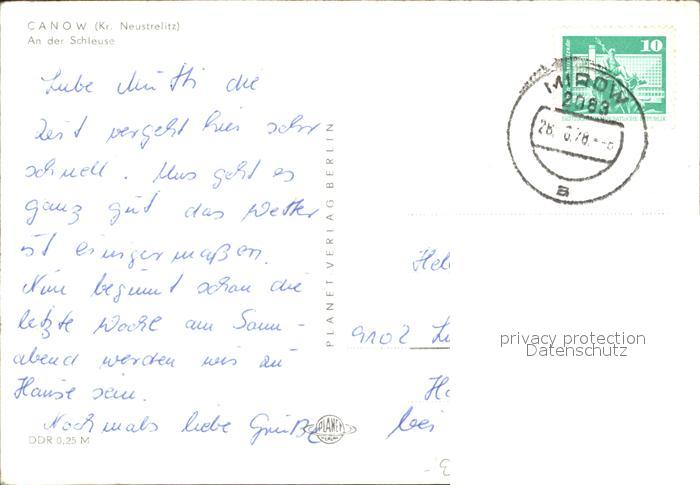 CANOW (Kr. Neustrelitz)
An der Schleuse
Liebe Mutti die
Zeit vergeht hier sehr
schnell. Uns geht es
ganz gut das Wetter
ist einigermaßen.
Nun beginnt schon die
letzte Woche am Sonn-
abend werden wir zu
Hause sein.
Nochmals liebe Grüße
DDR 0,25 M
PLANET VERLAG BERLIN
PLANET
VERLAG
10
MIROW
2083
28. 78.
a
9102
bei
privacy protection
Datenschutz